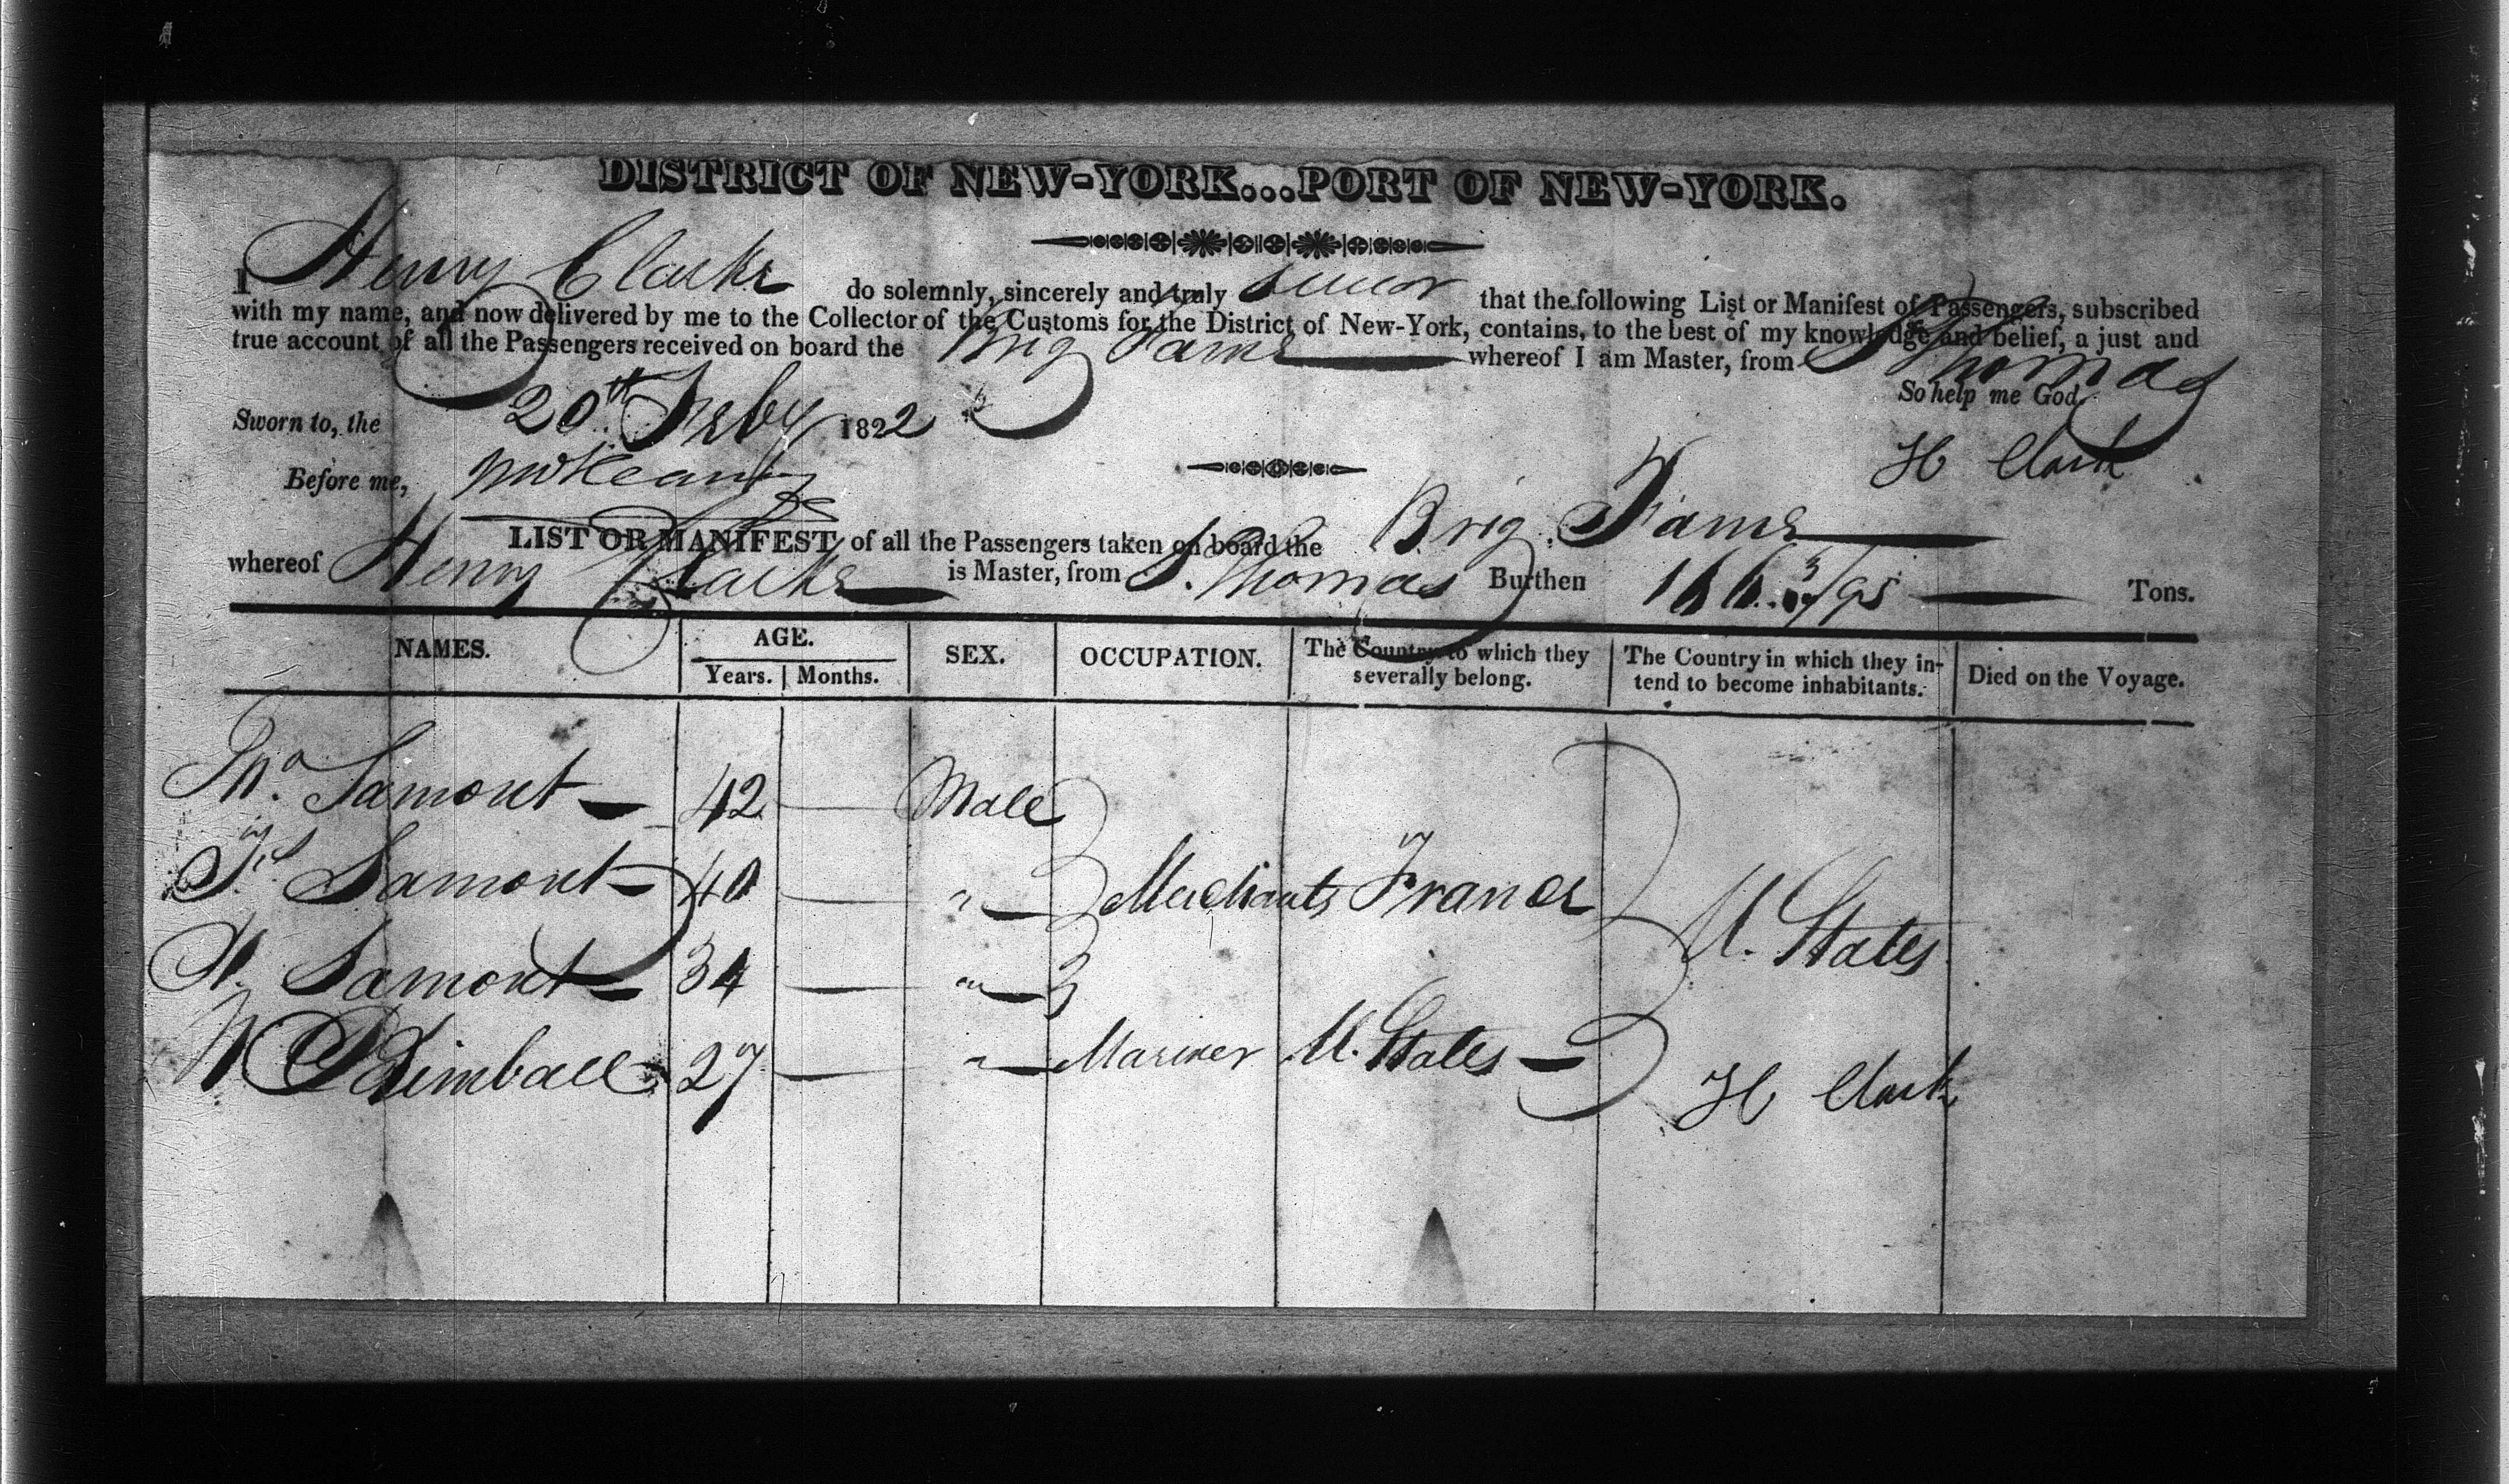 DISTRICT OF NEW-YORK...PORT OF NEW-YORK.
I Henry Clarke do solemnly, sincerely and truly swear that the following List or Manifest of Passengers, subscribed
with my name, and now delivered by me to the Collector of the Customs for the District of New-York, contains, to the best of my knowledge and belief, a just and
true account of all the Passengers received on board the Brig Fame whereof I am Master, from St Thomas
So help me God.
Sworn to, the 20th Feby 1822
H Clark
Before me,
LIST OR MANIFEST of all the Passengers taken on board the Brig Fame
whereof Henry Clarke is Master, from St. Thomas Burthen 166 3/95 Tons.
NAMES. AGE. SEX. OCCUPATION. The Country to which they severally belong. The Country in which they intend to become inhabitants. Died on the Voyage.
Years. Months.
Jno. Lamont 42 Male
Js Lamont 40 " Merchants France
A. Lamont 34 " U. States
W Kimball 27 " Mariner U. States
H Clark